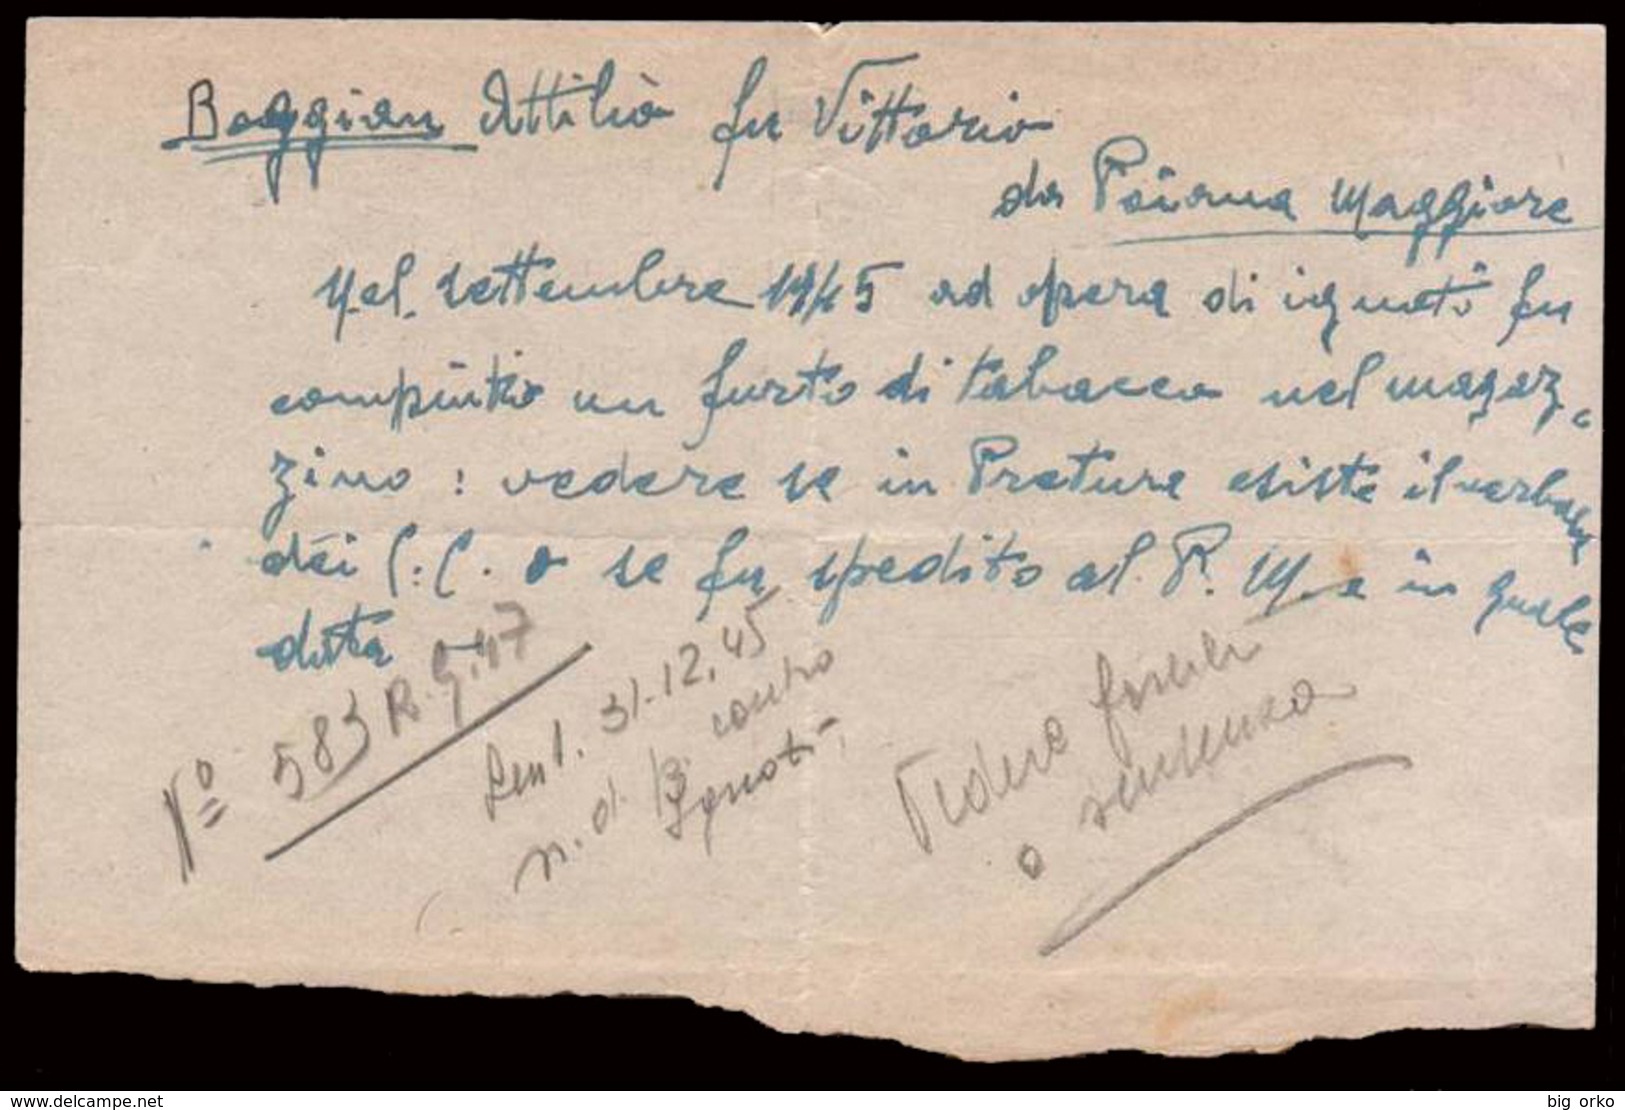 Boggian Attilio fu Vittorio
da Poiana Maggiore
Nel settembre 1945 ad opera di ignoti fu
compiuto un furto di tabacco nel magaz=
zino : vedere se in Pretura esiste il verbale
dei C.C. o se fu spedito al P.M. e in quale
data
N° 583 R.G. 47
Sent. 31.12.45
n. d. P. contro
Ignoti
Vedere
o sentenza
www.delcampe.net
big orko